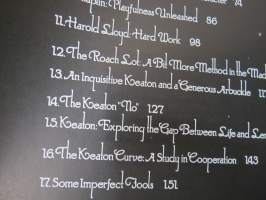 Playfulness Unleashed 86
11. Harold Lloyd: Hard Work 98
12. The Roach Lot: A Bit More Method in the Mad
13. An Inquisitive Keaton and a Generous Arbuckle 117
14. The Keaton "No" 127
15. Keaton: Exploring the Gap Between Life and
16. The Keaton Curve: A Study in Cooperation 143
17. Some Imperfect Tools 151